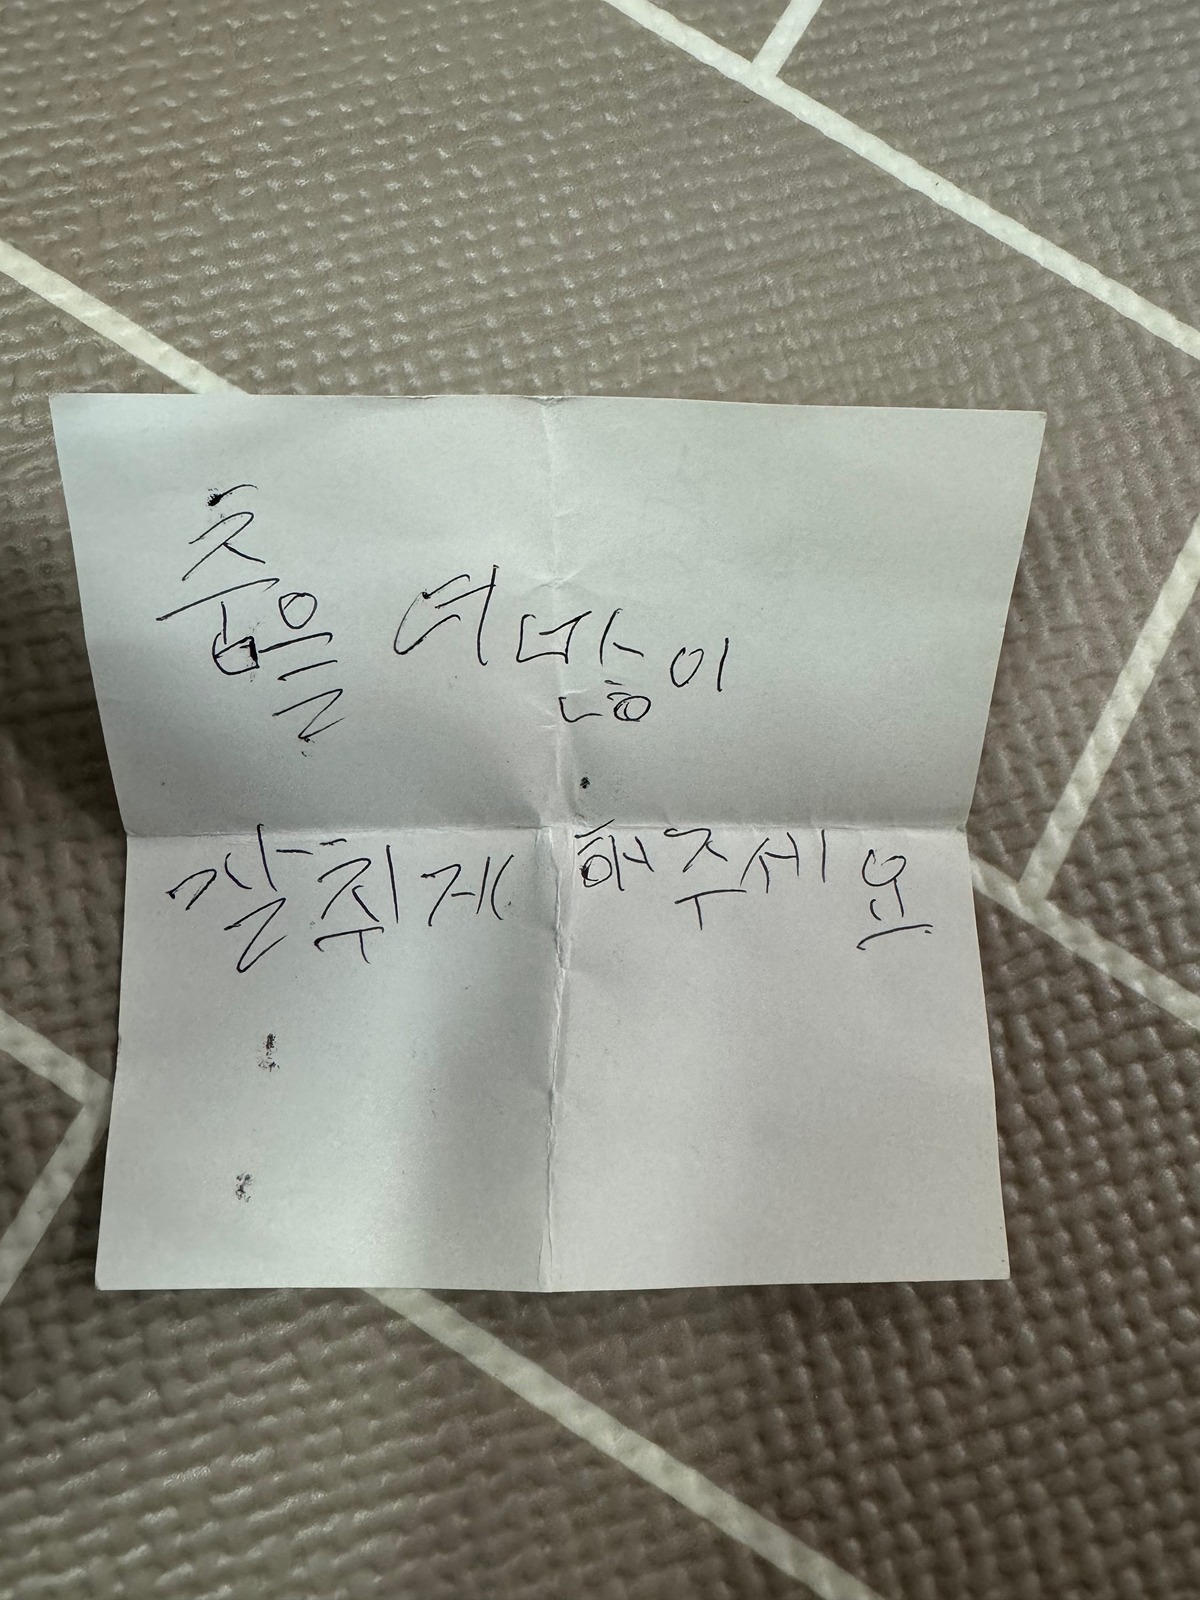 춤을 더 많이
잘취게 해주세요